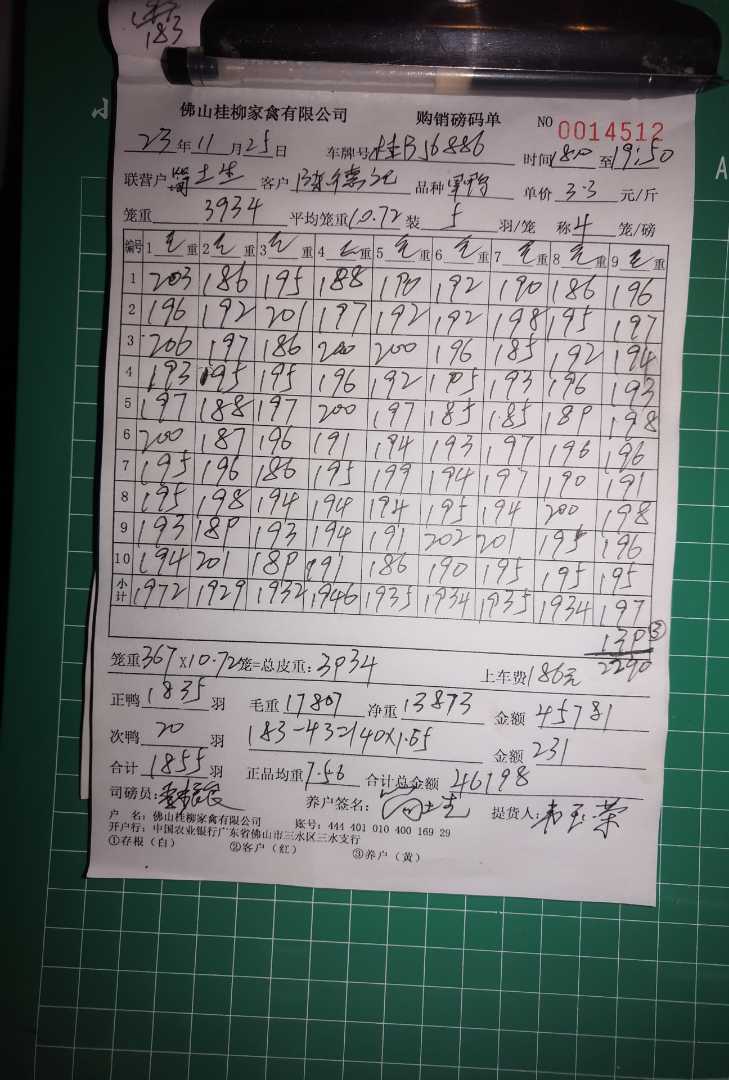 183
佛山桂柳家禽有限公司 购销磅码单 NO 0014512
23年11月25日 车牌号桂B56886 时间18:0至19:50
联营户 客户陈德记 品种 单价3.3元/斤
笼重3934 平均笼重10.72装5羽/笼 称4笼/磅
编号 1毛重 2毛重 3毛重 4毛重 5毛重 6毛重 7毛重 8毛重 9毛重
1 203 186 195 188 190 192 190 186 196
2 196 192 201 197 192 192 198 195 197
3 206 197 186 200 200 196 185 192 194
4 193 195 195 196 192 195 193 196 193
5 197 188 197 200 197 185 185 189 198
6 200 187 196 191 194 193 197 196 196
7 195 196 186 195 199 194 197 190 191
8 195 198 194 194 194 195 194 200 198
9 193 189 193 194 191 202 201 195 196
10 194 201 189 191 186 190 195 195 195
小计 1972 1929 1932 1946 1935 1934 1935 1934 197
139③
2290
笼重367×10.72笼=总皮重:3934 上车费186元
正鸭1835羽 毛重17807 净重13873 金额45781
次鸭20羽 183-43=140×1.65 金额231
合计1855羽 正品均重7.56 合计总金额46198
司磅员: 养户签名: 提货人:韦玉荣
户 名:佛山桂柳家禽有限公司 账号:444 401 010 400 169 29
开户行:中国农业银行广东省佛山市三水区三水支行
①存根(白) ②客户(红) ③养户(黄)